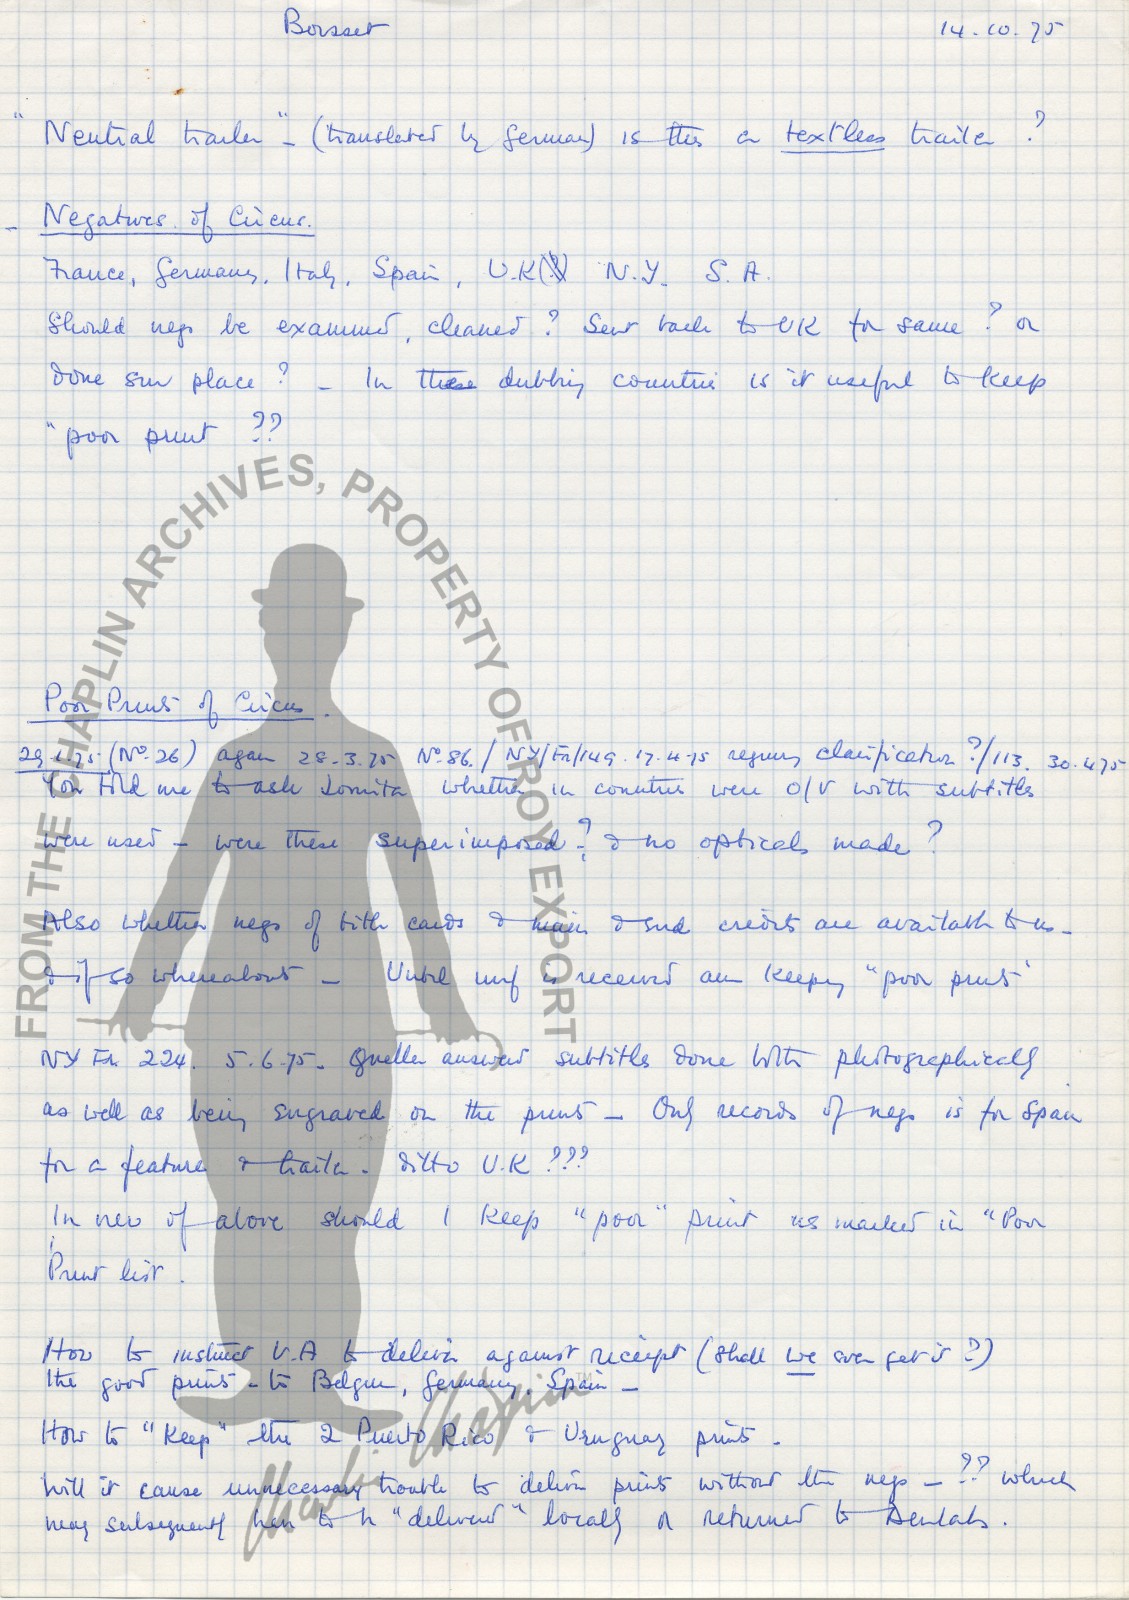 Boisset 14.10.75
"Neutral trailer" - (translated by German) is this a textless trailer ?
- Negatives of Circus.
France, Germany, Italy, Spain, U.K N.Y. S.A.
Should negs be examined, cleaned ? Sent back to UK for same ? or
done sur place ? - In these dubbing countries is it useful to keep
"poor print ??
Poor Prints of Circus.
29.1.75 (No 26) again 28.3.75 No 86. / NY/Fr/149. 17.4.75 clarification ? /113. 30.4.75
You told me to ask Lomita whether in countries were O/V with subtitles
were used - were these superimposed ? & no opticals made ?
Also whether negs of title cards & main & end credits are available to us -
& if so whereabouts - Until inf is received am keeping "poor prints"
NY Fr. 224. 5.6.75. answered subtitles done both photographically
as well as being engraved on the prints - Only records of negs is for Spain
for a feature & trailer. ditto U.K ???
In view of above should I keep "poor" print as marked in "Poor
Print list.
How to instruct U.A to deliver against receipt (shall we even get it ?)
the good prints - to Belgium, Germany, Spain -
How to "keep" the 2 Puerto Rico & Uruguay prints.
Will it cause unnecessary trouble to deliver prints without the negs - ?? which
may subsequently have to be "delivered" locally or returned to Denlabs.
FROM THE CHAPLIN ARCHIVES, PROPERTY OF ROY EXPORT
Charlie Chaplin™